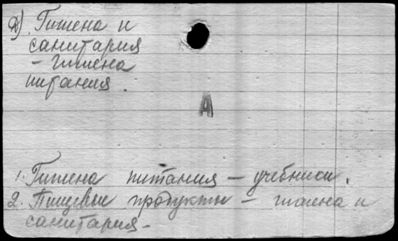 д) Гигиена и
санитария
- гигиена
питания.
А
1. Гигиена питания - учебники.
2. Пищевые продукты - гигиена и
санитария -